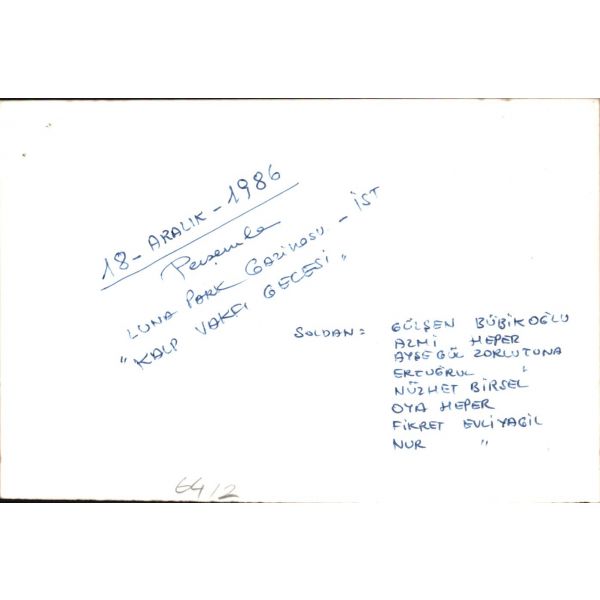 18 - ARALIK - 1986
Perşembe
LUNA PARK GAZİNOSU - İST
"KALP VAKFI GECESİ"
SOLDAN: GÜLŞEN BÜBİKOĞLU
AZMİ HEPER
AYŞEGÜL ZORLUTUNA
ERTUĞRUL "
NÜZHET BİRSEL
OYA HEPER
FİKRET EVLİYAGİL
NUR "
64/2